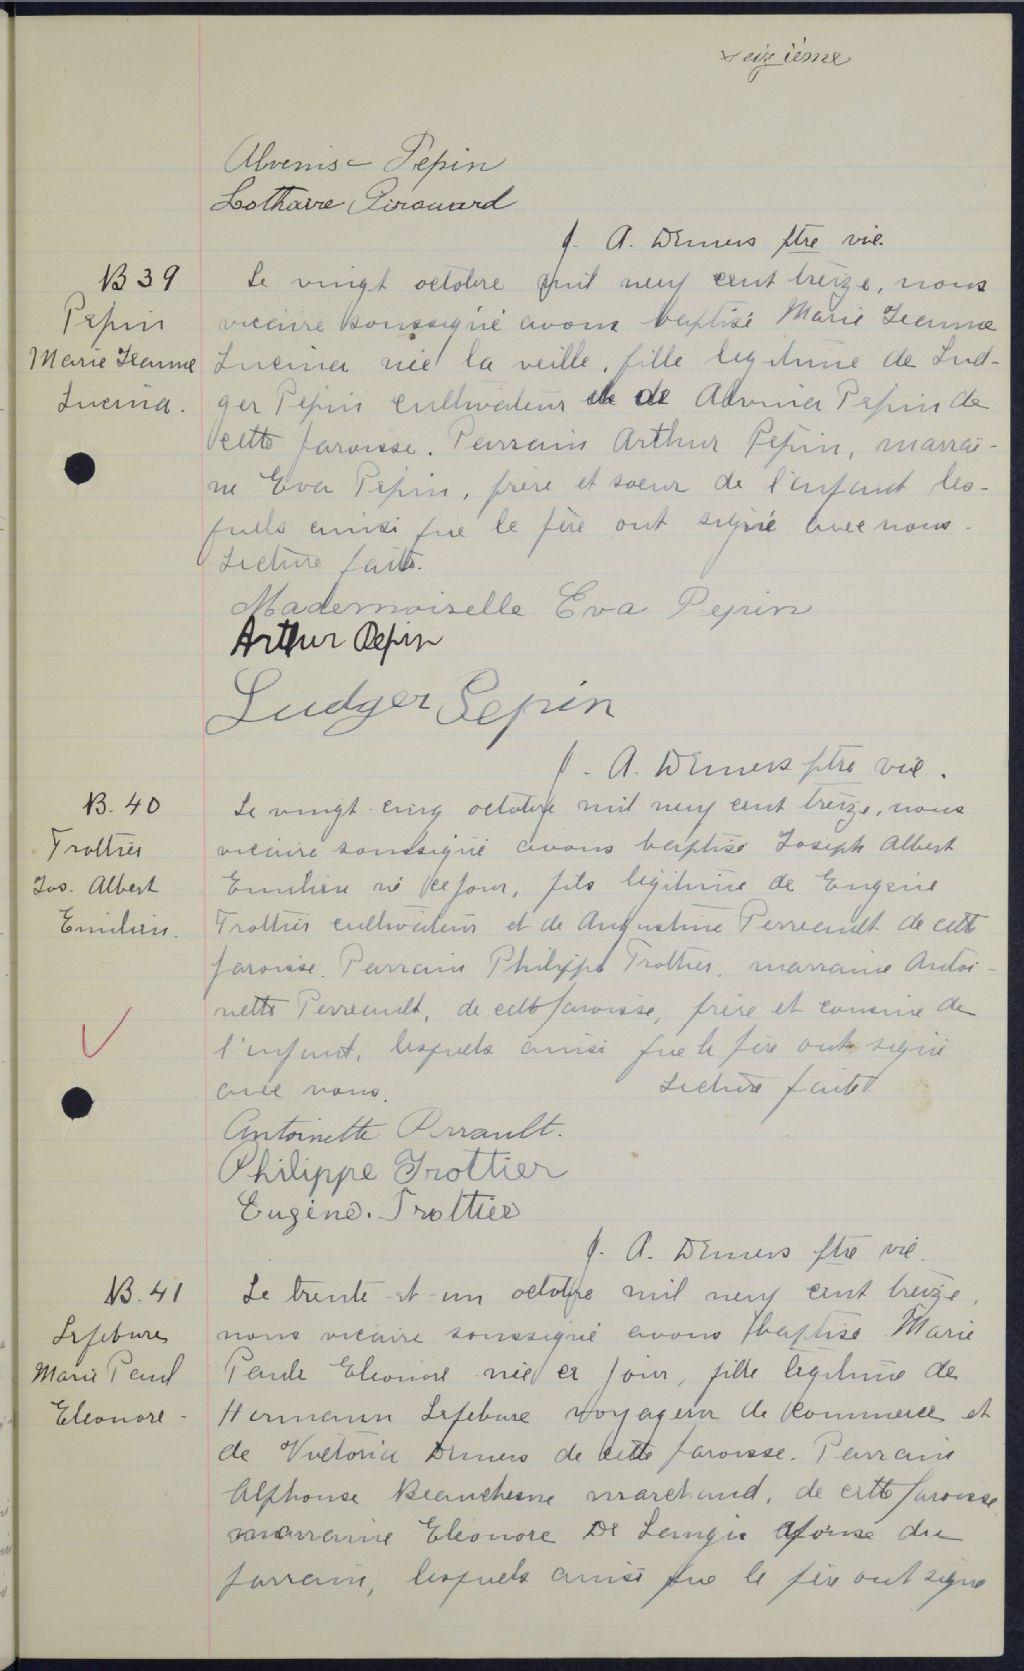 seizième
Alvenise Pepin
Lothaire Girouard
J. A. Demers ptre vic.
B 39
Pepin
Marie Jeanne
Lucina.
Le vingt octobre mil neuf cent treize, nous
vicaire soussigné avons baptisé Marie Jeanne
Lucina née la veille, fille legitime de Lud-
ger Pepin cultivateur et de Alvina Pepin de
cette paroisse. Parrain Arthur Pepin, marrai-
ne Eva Pepin, frère et soeur de l'enfant les-
quels ainsi que le père ont signé avec nous.
Lecture faite.
Mademoiselle Eva Pepin
Arthur Pepin
Ludger Pepin
J. A. Demers ptre vic.
B. 40
Trottier
Jos. Albert
Emilien.
Le vingt-cinq octobre mil neuf cent treize, nous
vicaire soussigné avons baptisé Joseph Albert
Emilien né ce jour, fils légitime de Eugène
Trottier cultivateur et de Augustine Perreault de cette
paroisse. Parrain Philippe Trottier, marraine Antoi-
nette Perreault, de cette paroisse, frère et cousine de
l'enfant, lesquels ainsi que le père ont signé
avec nous. Lecture faite
Antoinette Perrault.
Philippe Trottier
Eugène. Trottier
J. A. Demers ptre vic.
B. 41
Lefebvre
Marie Paul
Eleonore -
Le trente-et-un octobre mil neuf cent treize,
nous vicaire soussigné avons baptisé Marie
Paule Eleonore née ce jour, fille légitime de
Hermann Lefebvre voyageur de commerce et
de Victoria Demers de cette paroisse. Parrain
Alphonse Beauchesne marchand, de cette paroisse,
marraine Eleonore De épouse du
parrain, lesquels ainsi que le père ont signé